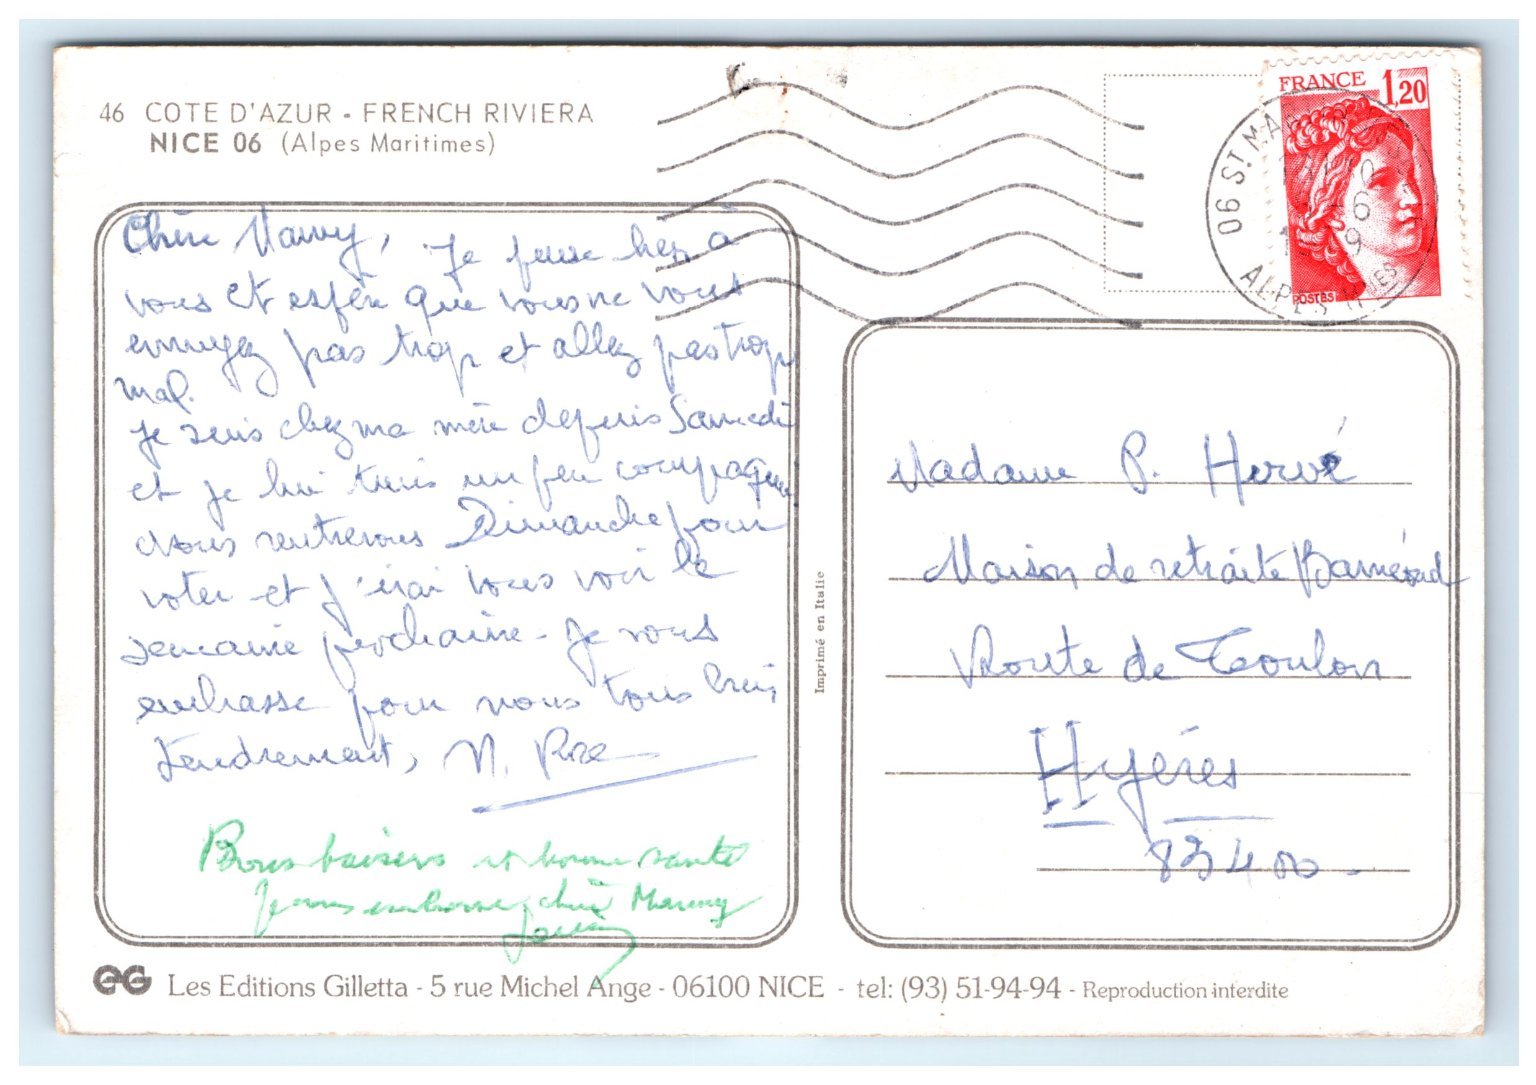 46 COTE D'AZUR - FRENCH RIVIERA
NICE 06 (Alpes Maritimes)
Chère Mamy, Je pense bien à
vous et espère que vous ne vous
ennuyez pas trop et allez pas trop
mal.
Je suis chez ma mère depuis Samedi
et je lui tiens un peu compagnie
Nous rentrerons Dimanche pour
voter et j'irai vous voir la
semaine prochaine - Je vous
embrasse pour nous tous bien
tendrement, M. Rose
Bons baisers et bonne santé
Je vous embrasse chère Mammy
FRANCE 1,20
POSTES
06 ST. MA
-6
ALPES MMES
Madame P. Hervé
Maison de retraite
Route de Toulon
Hyéres
83400.
Imprimé en Italie
EG Les Editions Gilletta - 5 rue Michel Ange - 06100 NICE - tel: (93) 51-94-94 - Reproduction interdite